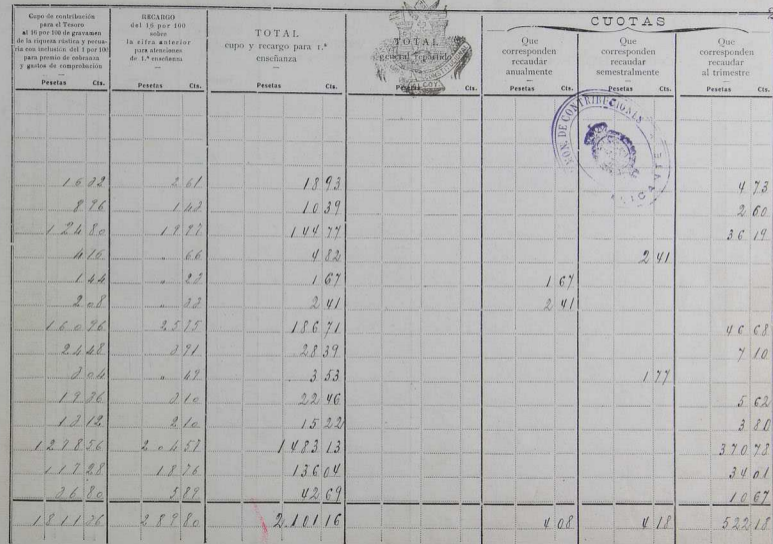 Cupo de contribución
para el Tesoro
al 16 por 100 de gravamen
de la riqueza rústica y pecua-
ria con inclusión del 1 por 100
para premio de cobranza
y gastos de comprobación
Pesetas Cts.
RECARGO
del 16 por 100
sobre
la cifra anterior
para atenciones
de 1.ª enseñanza
Pesetas Cts.
TOTAL
cupo y recargo para 1.ª
enseñanza
Pesetas Cts.
TOTAL
general repartido
Pesetas Cts.
CUOTAS
Que
corresponden
recaudar
anualmente
Pesetas Cts.
Que
corresponden
recaudar
semestralmente
Pesetas Cts.
Que
corresponden
recaudar
al trimestre
Pesetas Cts.
DE CONTRIBUCIONES
16 32 2 61 18 93 4 73
8 96 1 43 10 39 2 60
124 80 19 97 144 77 36 19
4 16 " 66 4 82 2 41
1 44 " 23 1 67 1 67
2 08 " 33 2 41 2 41
160 96 25 75 186 71 46 68
24 48 3 91 28 39 7 10
3 04 " 49 3 53 1 77
19 36 3 10 22 46 5 62
13 12 2 10 15 22 3 80
1278 56 204 57 1483 13 370 78
117 28 18 76 136 04 34 01
36 80 5 89 42 69 10 67
1811 36 289 80 2101 16 4 08 4 18 522 18